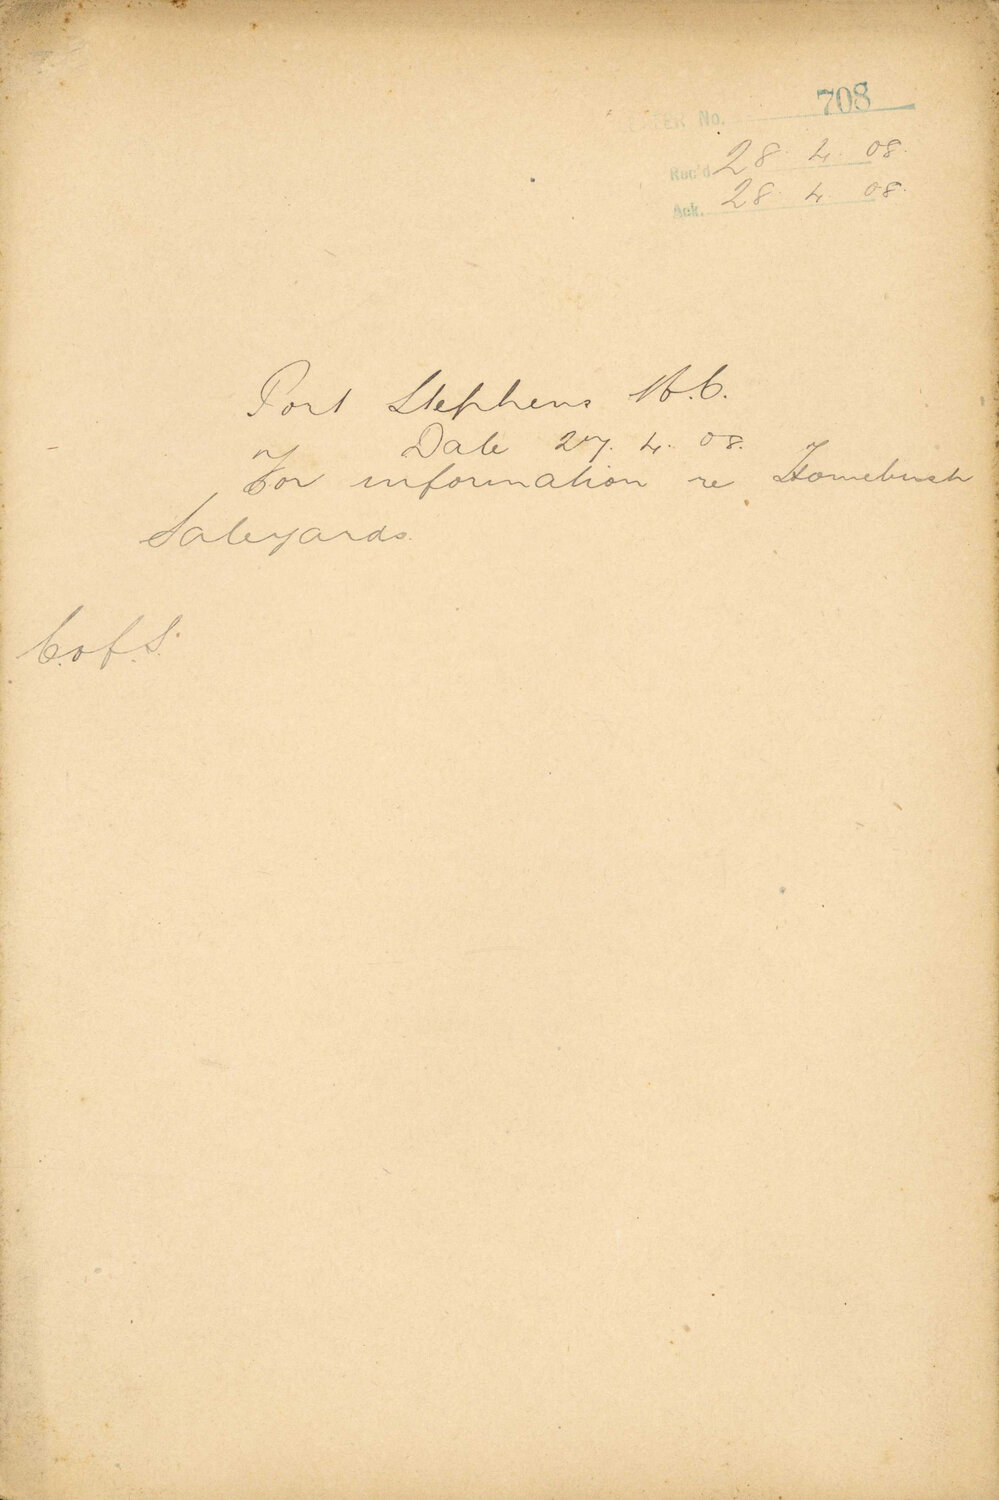 LETTER No. 708
Rec'd 28. 4. 08.
Ack. 28. 4. 08.
Port Stephens H.C.
Date 27. 4. 08.
For information re Homebush
Saleyards.
C. of S.